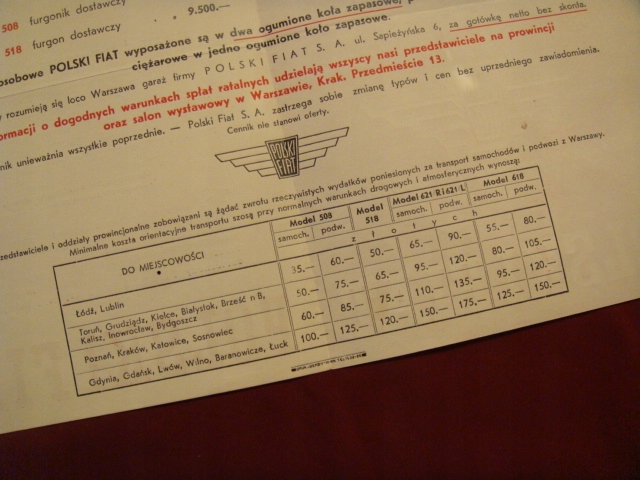 508 furgonik dostawczy
518 furgon dostawczy . „ 9.500.—
osobowe POLSKI FIAT wyposażone są w dwa ogumione koła zapasowe,
ciężarowe w jedno ogumione koło zapasowe.
rozumieją się loco Warszawa garaż firmy POLSKI FIAT S. A. ul. Sapieżyńska 6, za gotówkę netto bez skonta.
ormacji o dogodnych warunkach spłat ratalnych udzielają wszyscy nasi przedstawiciele na prowincji
oraz salon wystawowy w Warszawie, Krak. Przedmieście 13.
nik unieważnia wszystkie poprzednie. — Polski Fiat S. A. zastrzega sobie zmianę typów i cen bez uprzedniego zawiadomienia.
Cennik nie stanowi oferty.
POLSKI
FIAT
zedstawiciele i oddziały prowincjonalne zobowiązani są żądać zwrotu rzeczywistych wydatków poniesionych za transport samochodów i podwozi z Warszawy.
Minimalne koszta orientacyjne transportu szosą przy normalnych warunkach drogowych i atmosferycznych wynoszą:
DO MIEJSCOWOŚCI
Model 508 Model 518 Model 621 R i 621 L Model 618
samoch. podw. samoch. podw. samoch. podw.
złotych
Łódź, Lublin 35.— 60.— 50.— 65.— 90.— 55.— 80.—
Toruń, Grudziądz, Kielce, Białystok, Brześć n B,
Kalisz, Inowrocław, Bydgoszcz 50.— 75.— 65.— 95.— 120.— 80.— 105.—
Poznań, Kraków, Katowice, Sosnowiec 60.— 85.— 75.— 110.— 135.— 95.— 120.—
Gdynia, Gdańsk, Lwów, Wilno, Baranowicze, Łuck 100.— 125.— 120.— 150.— 175.— 125.— 150.—